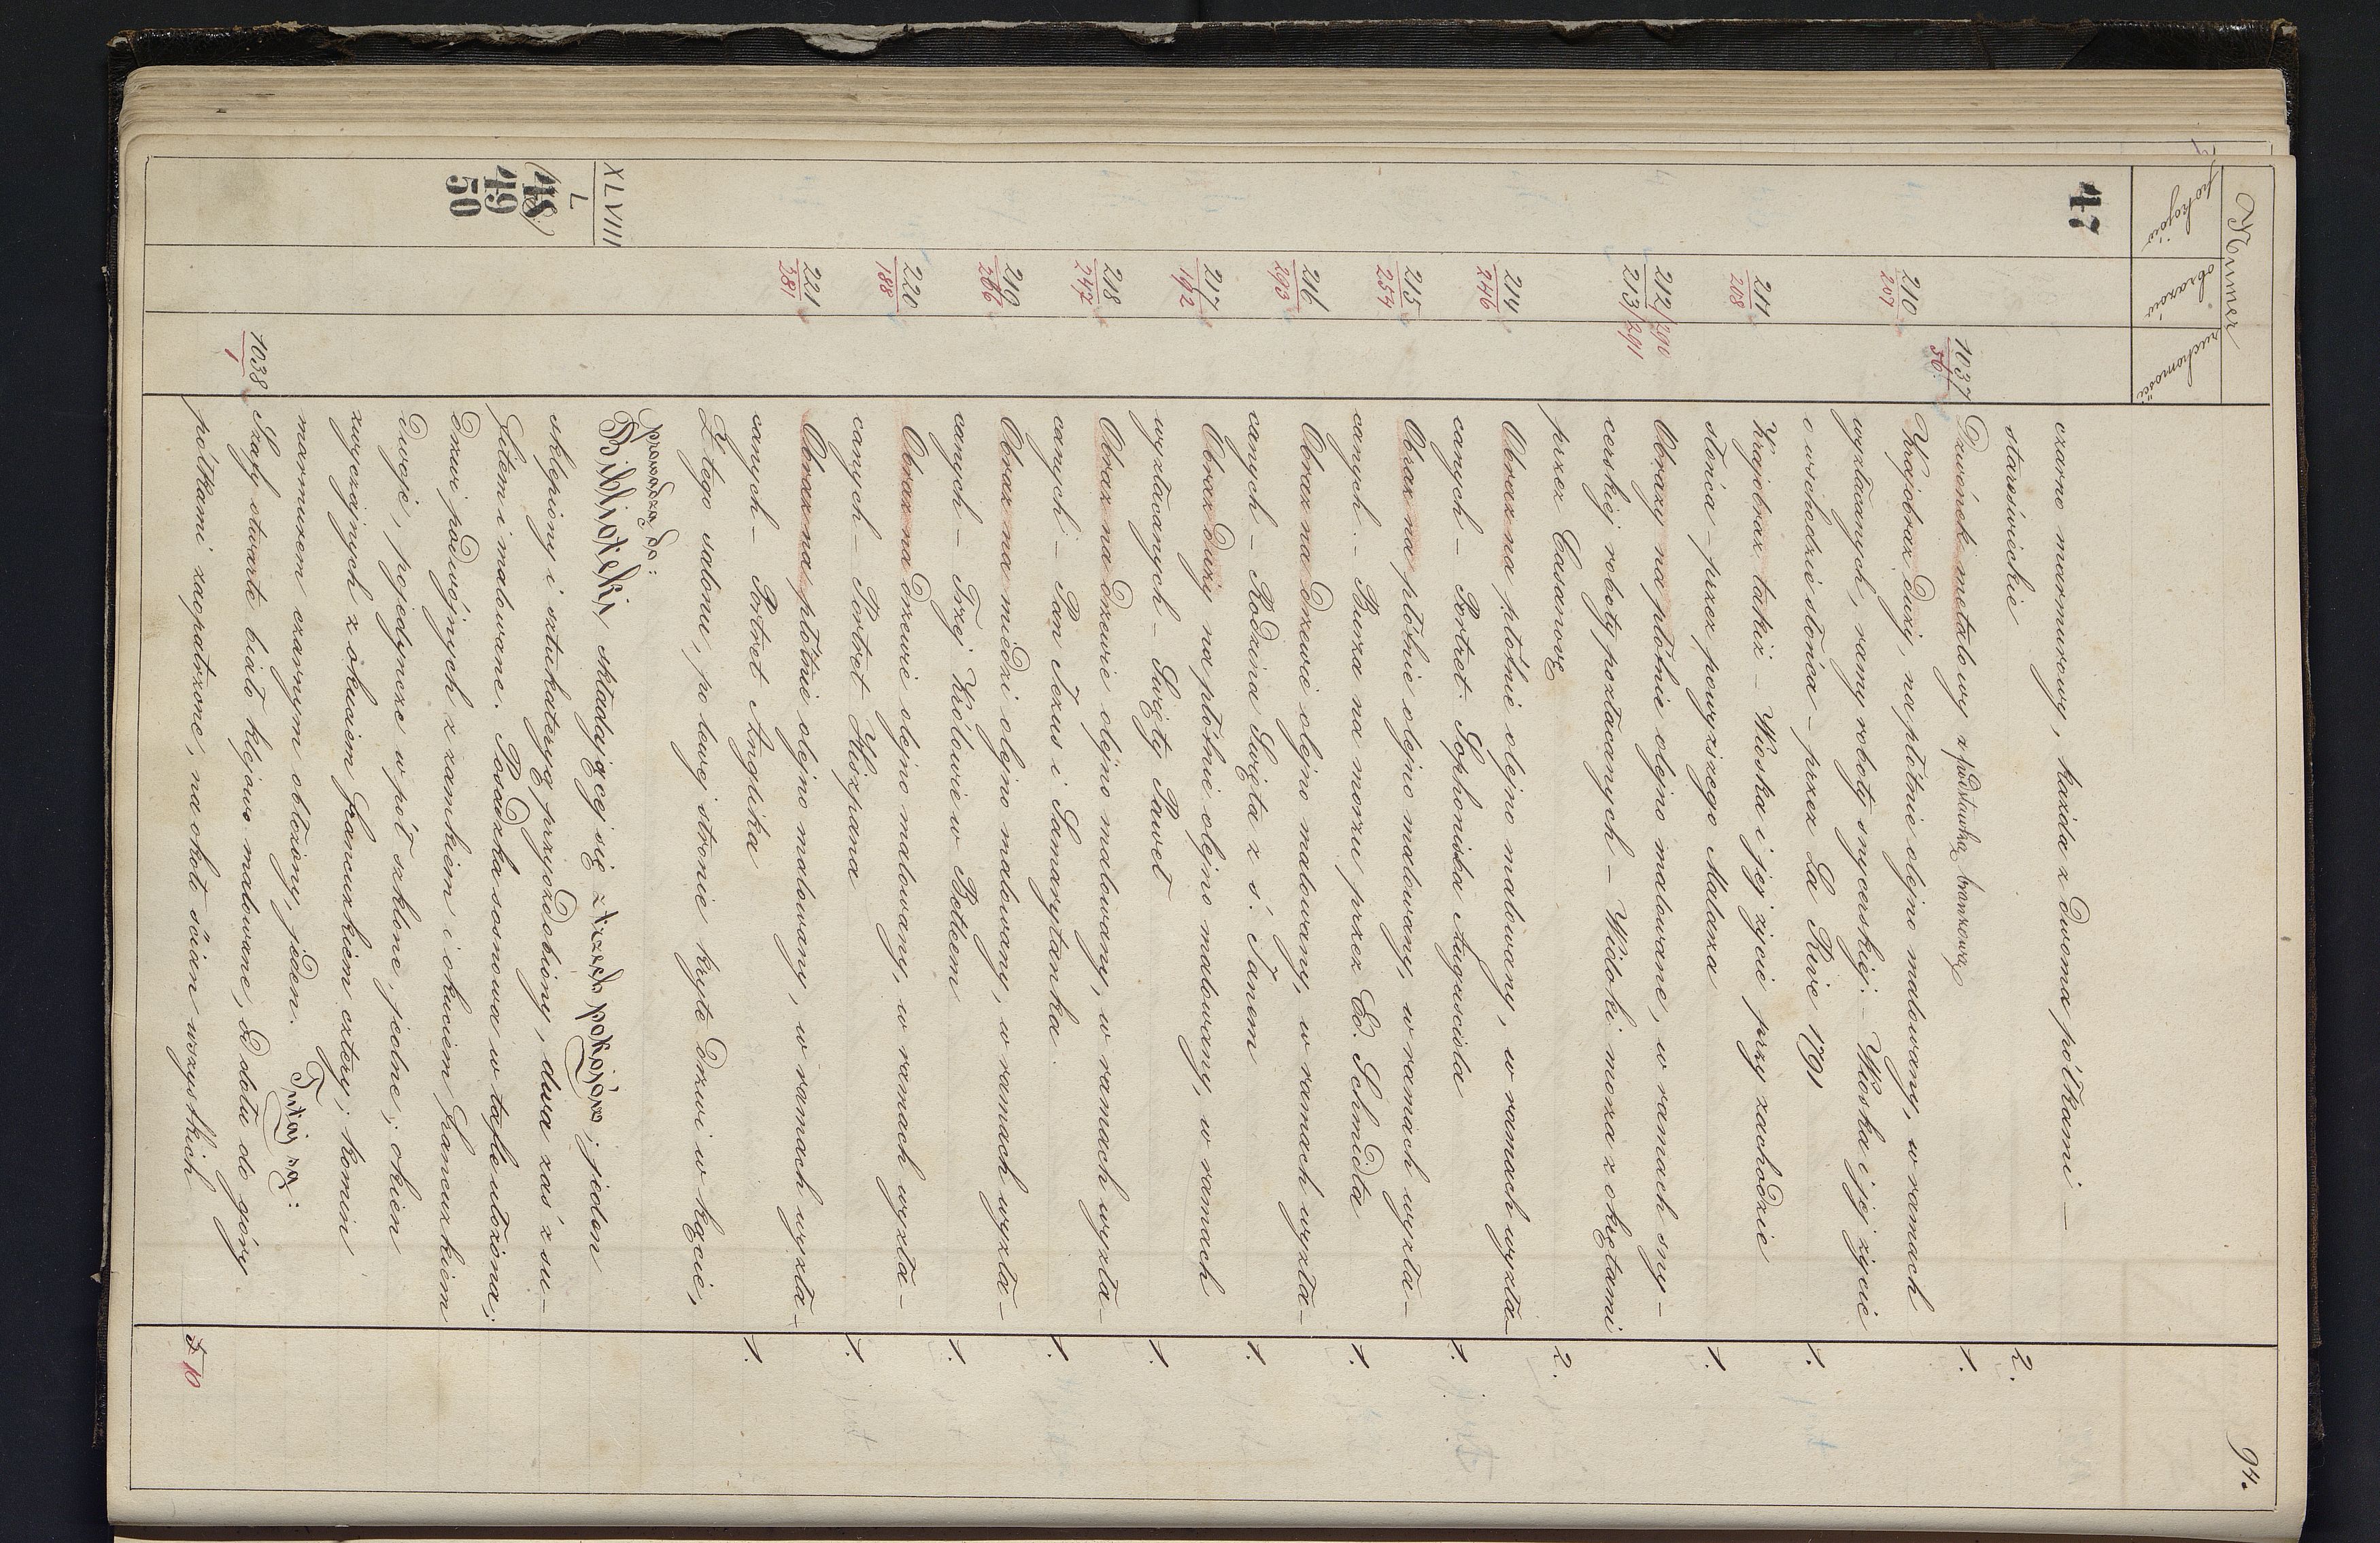 94.
Numer
pokojów obrazów ruchomości
47 czarno marmurowy, każda z dwoma półkami —
staroświeckie 2.
1037/56. Dzwónek metalowy z podstawką bronzową 1.
210/207 Krajobraz duży, na płótnie olejno malowany, w ramach
wyzłacanych, ramy roboty snycerskiej. – Wioska i jej życie
o wschodzie słońca – przez La Rive 1791 1.
211/208 Krajobraz takiż – Wioska i jej życie przy zachodzie
słońca – przez powyższego Malarza 1.
212/290 Obrazy na płótnie olejno malowane, w ramach sny–
213/291 cerskiej roboty pozłacanych – Widoki morza z okrętami
przez Casanovę 2.
214/246 Obraz na płótnie olejno malowany, w ramach wyzła–
canych – Portret Sophonisba Anguisciola 1.
215/254 Obraz na płótnie olejno malowany, w ramach wyzła–
canych. – Burza na morzu przez Ed. Schmidta 1.
216/293 Obraz na drzewie olejno malowany, w ramach wyzła–
canych – Rodzina Święta z ś. Janem 1.
217/192 Obraz duży na płótnie olejno malowany, w ramach
wyzłacanych – Święty Paweł 1.
218/247 Obraz na drzewie olejno malowany, w ramach wyzła–
canych – Pan Jezus i Samarytanka. 1.
219/266 Obraz na miedzi olejno malowany, w ramach wyzła–
canych – Trzej Królowie w Betleem 1.
220/188 Obraz na drzewie olejno malowany, w ramach wyzła–
canych – Portret Hiszpana 1.
221/381 Obraz na płótnie olejno malowany, w ramach wyzła–
canych – Portret Anglika 1.
Z tego salonu, po lewej stronie kryte drzwi w kącie,
prowadzą do:
XLVIII/L Biblioteki, składającej się z trzech pokojów; jeden
(48) sklepiony i sztukateryą przyozdobiony, dwa zaś z su–
49 fitem i malowane. Posadzka sosnowa w tafle ułożona;
50 drzwi podwójnych z zamkiem i okuciem francuzkiem
dwoje, pojedyncze w pół szklone, jedne; okien
zwyczajnych z okuciem francuzkiem cztery; komin
marmurem czarnym obłożony, jeden. Tutaj są:
1038/1 Szafy otwarte biało klejowo malowane, od dołu do góry
półkami zaopatrzone, na około ścian wszystkich 10